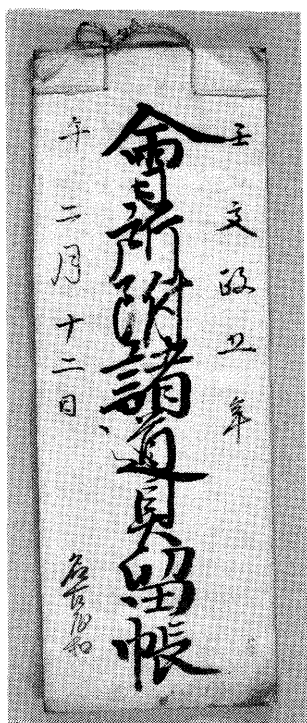 壬文政五年
會所附諸道具留帳
午二月十二日